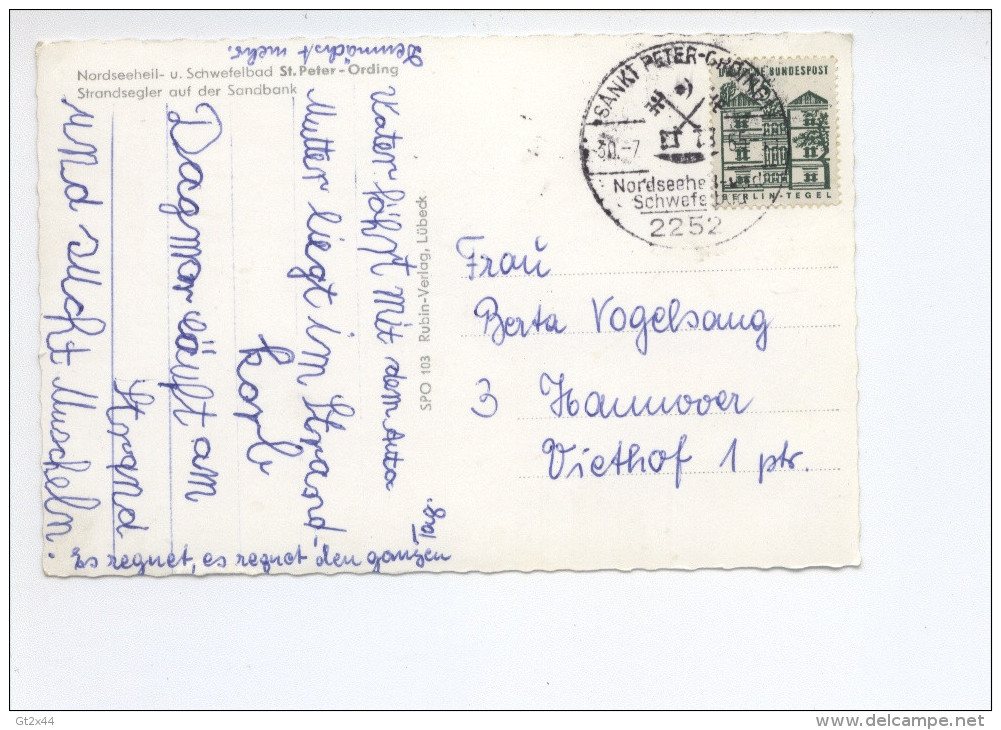 Nordseeheil- u. Schwefelbad St. Peter-Ording
Strandsegler auf der Sandbank
Demnächst mehr.
Vater fährt mit dem Auto
Mutter liegt im Strand
korb
Dagmar läuft am
Strand
und sucht Muscheln.
Es regnet, es regnet den ganzen
Tag.
SPO 103 Rubin-Verlag, Lübeck
SANKT PETER-ORDING
30.-7
Nordseeheil- und
Schwefelbad
2252
DEUTSCHE BUNDESPOST
BERLIN-TEGEL
Frau
Berta Vogelsang
3 Hannover
Viethof 1 ptr.
Gt2x44
delcampe.net